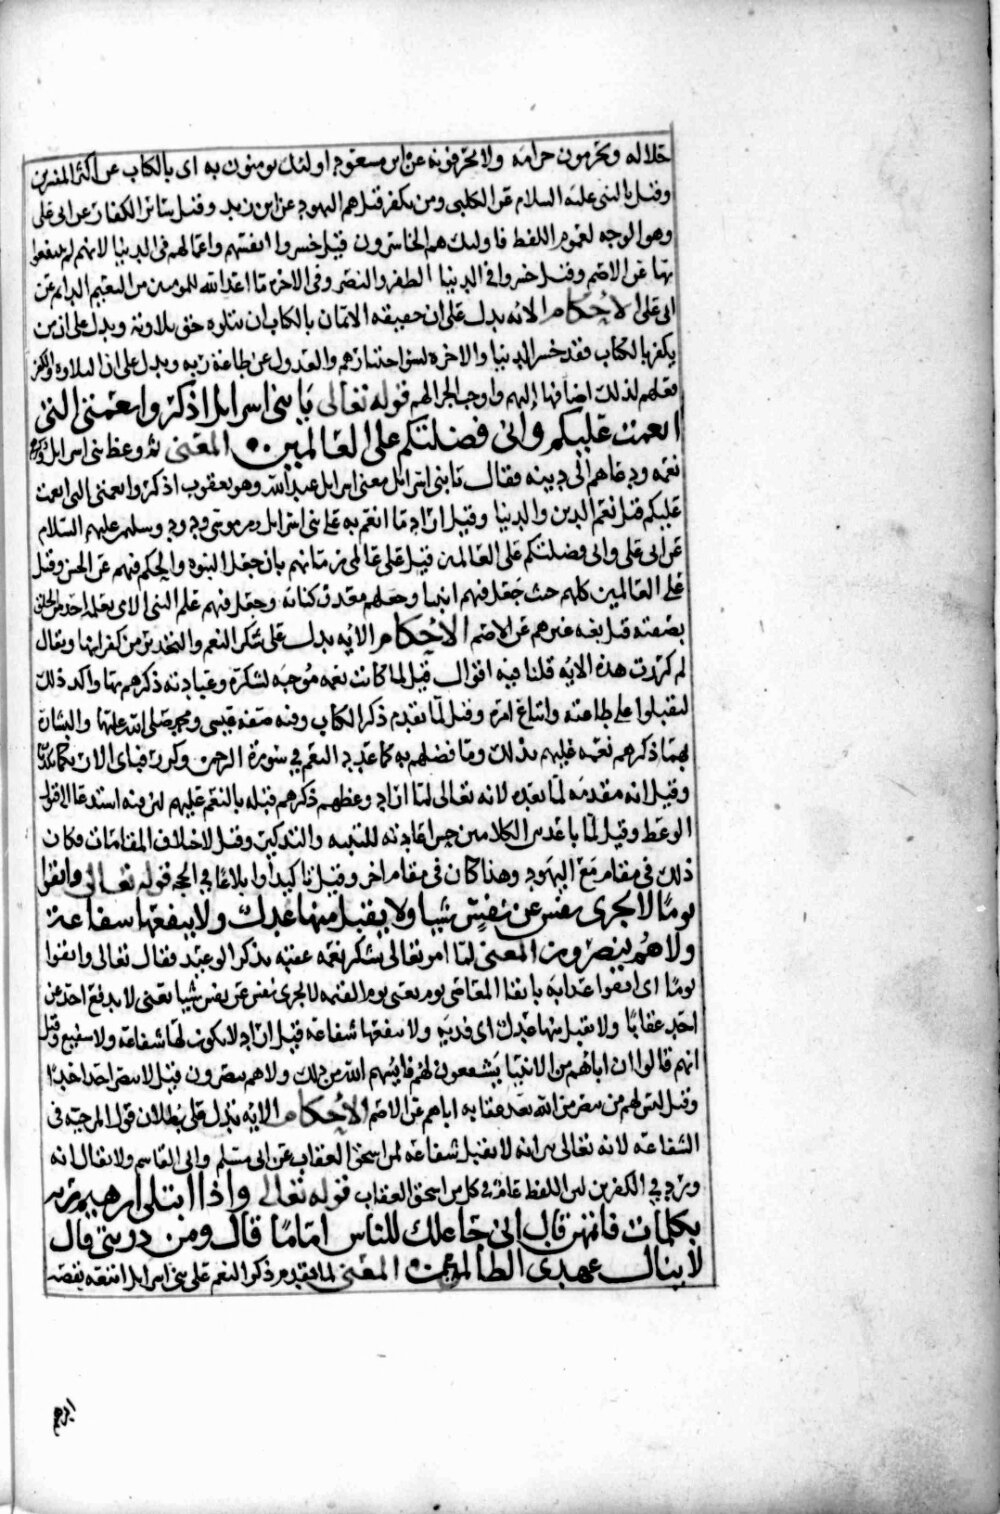 حلاله ويحرمون حرامه ولا يحرفونه عن ابن مسعود اولئك يومنون به اى بالكتاب عن اكثر المفسرين
وقيل بالنبى عليه السلام عن الكلبى ومن يكفر قيل هم اليهود عن ابن زيد وقيل سائر الكفار عن ابى على
وهو الوجه لعموم اللفظ فاوليك هم الخاسرون قيل خسروا انفسهم واعمالهم فى الدينيا لانهم لم ينتفعوا
بها عن الاصم وقيل خسروا فى الدينيا الظفر والنصر وفى الاخرة ما اعد الله للمومنين من النعيم الدايم عن
ابى على الاحكام الايه يدل على ان حقيقه الايمان بالكتاب ان يتلوه حق تلاوته ويدل على ان من
يكفر بالكتاب فقد خسر الدينيا والاخره لسو اختيارهم والعدول عن طاعة ربه ويدل على ان التلاوة والكفر
فعلهم لذلك اضافها اليهم واوجب الجزا لهم قوله تعالى يا بنى اسرايل اذكروا نعمتى التى
انعمت عليكم وانى فضلتكم على العالمين المعنى ثم وعظ بنى اسرايل وذكرهم
نعمه ودعاهم الى دينه فقال يا بنى اسرائل معنى اسرايل عبد الله وهو يعقوب اذكروا نعمتى التى انعمت
عليكم قيل نعم الدين والدينا وقيل اراد ما انعم به على بنى اسرايل زمن موسى وداود وسليمن عليهم السلام
عن ابى على وانى فضلتكم على العالمين قيل على عالمى زمانهم بان جعل النبوه والحكم فيهم عن الحسن وقيل
على العالمين كلهم حيث جعل فيهم انبيا وجعلهم معدن كتابه وجعل فيهم علم النبى الامى يعلمه احد من الخلق
بصفته قبل بعثه غيرهم عن الاصم الاحكام الايه يدل على شكر النعم والتحذير من كفرانها ويقال
لم كررت هذه الايه قلنا فيه اقوال قيل لما كانت نعمه موجبه لشكره وعبادته ذكرهم بها واكد ذلك
ليقبلوا على طاعته واتباع امره وقيل لما تقدم ذكر الكتاب وفيه صفه عيسى ومحمد صلى الله عليهما والبشارة
بهما ذكرهم نعمه عليهم بذلك وما فضلهم به كما عدد النعم فى سورة الرحمن وكرر فباى الاء ربكما تكذبان
وقيل انه مقدمة لما بعده لانه تعالى لما اراد وعظهم ذكرهم قبله بالنعم عليهم لان فيه استدعا الا قبول
الوعظ وقيل لما باعد بين الكلامين حسن اعادته للتنبيه والتذكير وقيل لاختلاف المقامات فكان
ذلك فى مقام مع اليهود وهذا كان فى مقام اخر وقيل تاكيدا وابلاغا فى الحجه قوله تعالى واتقوا
يوما لا تجزى نفس عن نفس شيا ولا يقبل منها عدل ولا ينفعها شفاعة
ولا هم ينصرون المعنى لما امر تعالى بشكر نعمه عقبه بذكر الوعيد فقال تعالى واتقوا
يوما اى اتقوا عذابه باتقا المعاصى يوم يعنى يوم القيمه لا تجزى نفس عن نفس شيا يعنى لا يدفع احد عن
احد عقابا ولا يقبل منها عدل اى فدية ولا ينفعها شفاعة قيل اراد لا يكون لها شفاعة ولا شفيع وقيل
انهم قالوا ان اباهم من الانبيا يشفعون لهم فايسهم الله من ذلك ولا هم ينصرون قيل لا ينصر احد احدا
وقيل ليس لهم من ينصر من الله بعد عقابه اياهم عن الاصم الاحكام الايه تدل على بطلان قول المرجيه فى
الشفاعة لانه تعالى بين انه لا يقبل شفاعة لمن استحق العقاب عن ابى مسلم وابى القاسم ولا يقال انه
ورد فى الكفر بن لان اللفظ عام فى كل من استحق العقاب قوله تعالى واذ ابتلى ابرهيم ربه
بكلمات فاتمهن قال انى جاعلك للناس اماما قال ومن ذريتى قال
لا ينال عهدى الظالمين المعنى لما تقدم ذكر النعم على بنى اسرايل اتبعه بقصه
ابرهيم